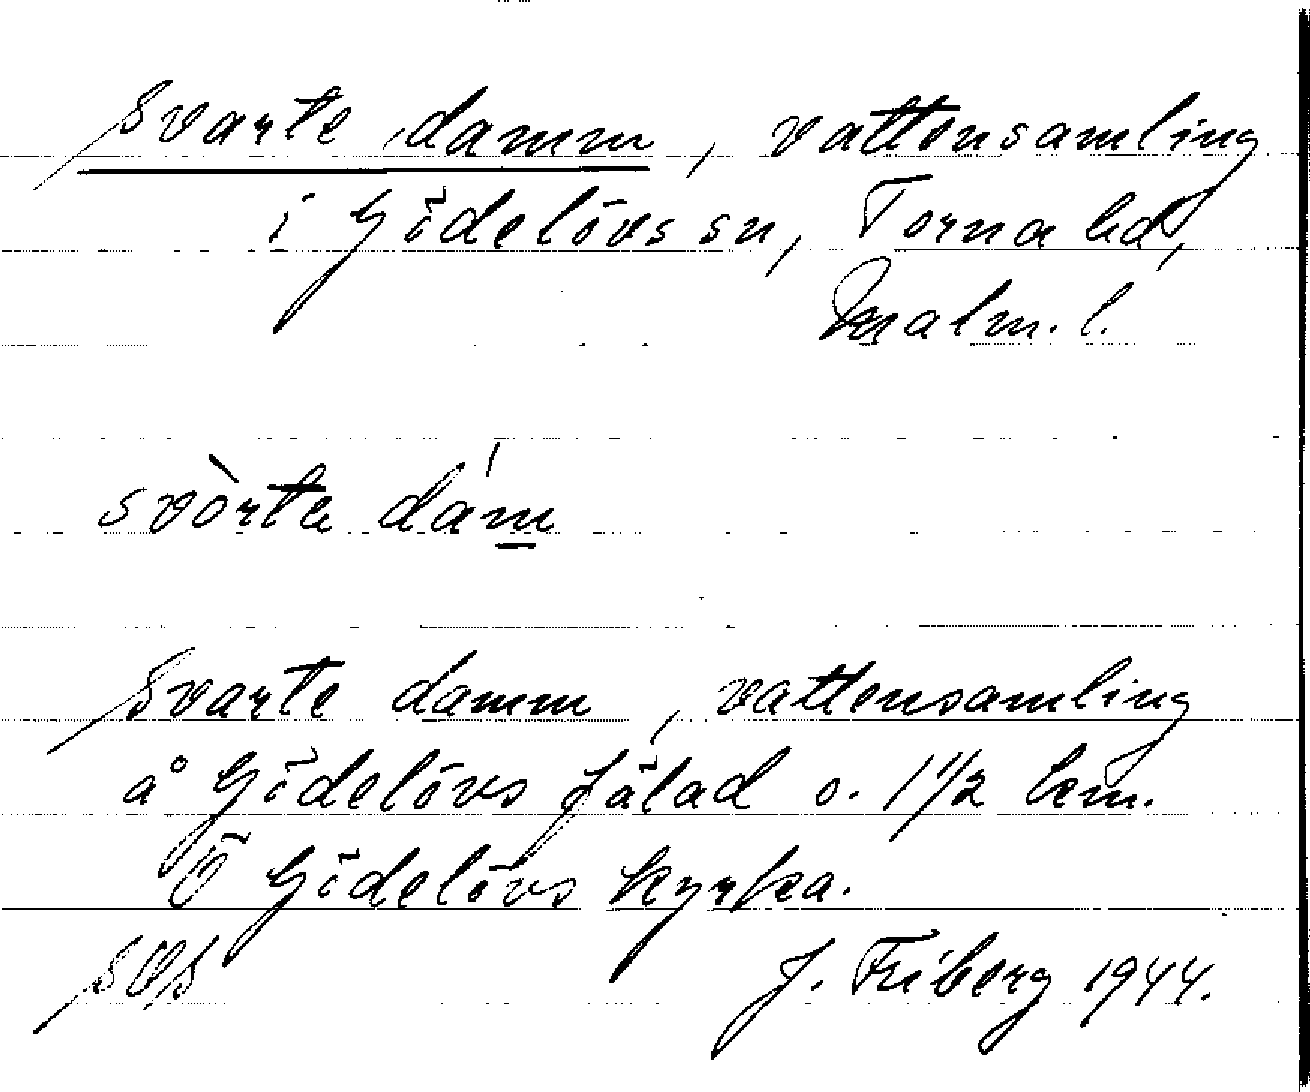 Svarte damm, vattensamling
i Gödelövs sn, Torna hd,
Malm. l.
svòrta dám
Svarte damm, vattensamling
å Gödelövs fälad o. 1 1/2 km.
Ö Gödelövs kyrka.
J. Friberg 1944.